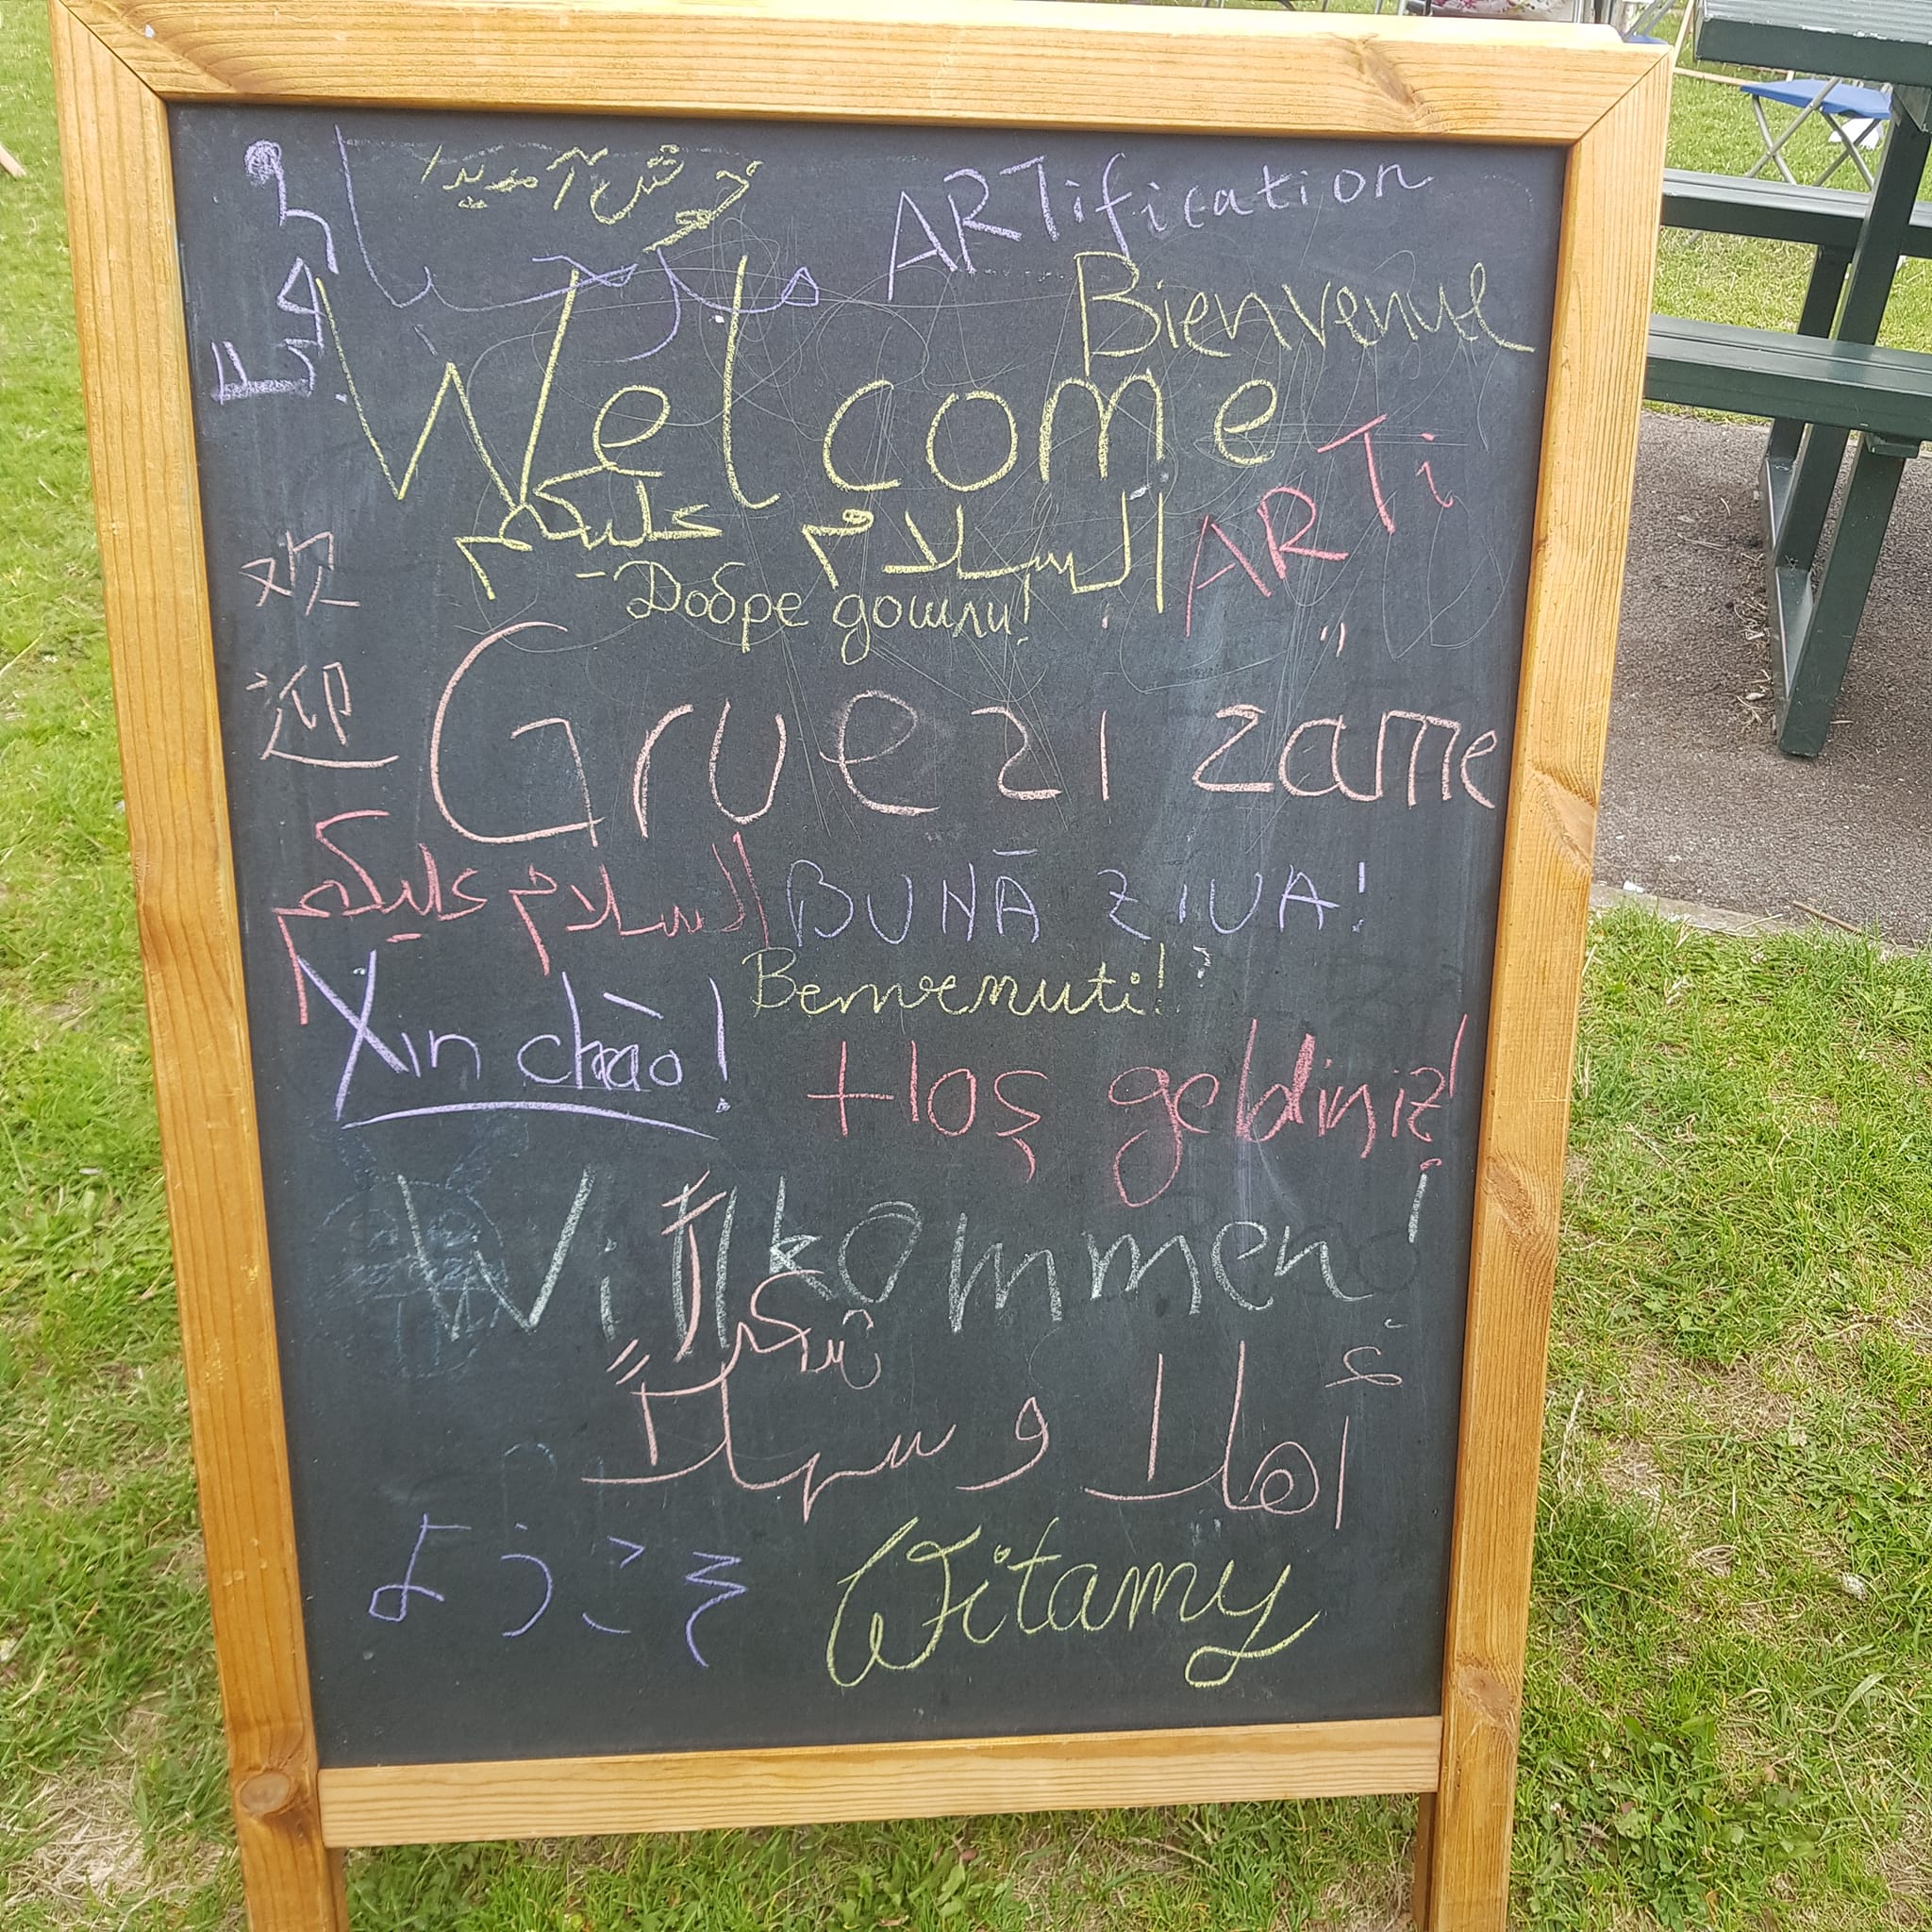 خوش آمدید!
ARTification
مرحبا
Bienvenue
Welcome
ARTi
السلام عليكم
- Добре дошли!
欢迎
Gruezi zäme
السلام عليكم
BUNĀ ZIUA!
Benvenuti!
Xin chào!
Hoş geldiniz!
Willkommen!
أهلا و سهلاً
ようこそ
Witamy